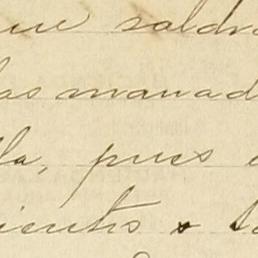 que saldr
las manad
lla, pues
ientos &